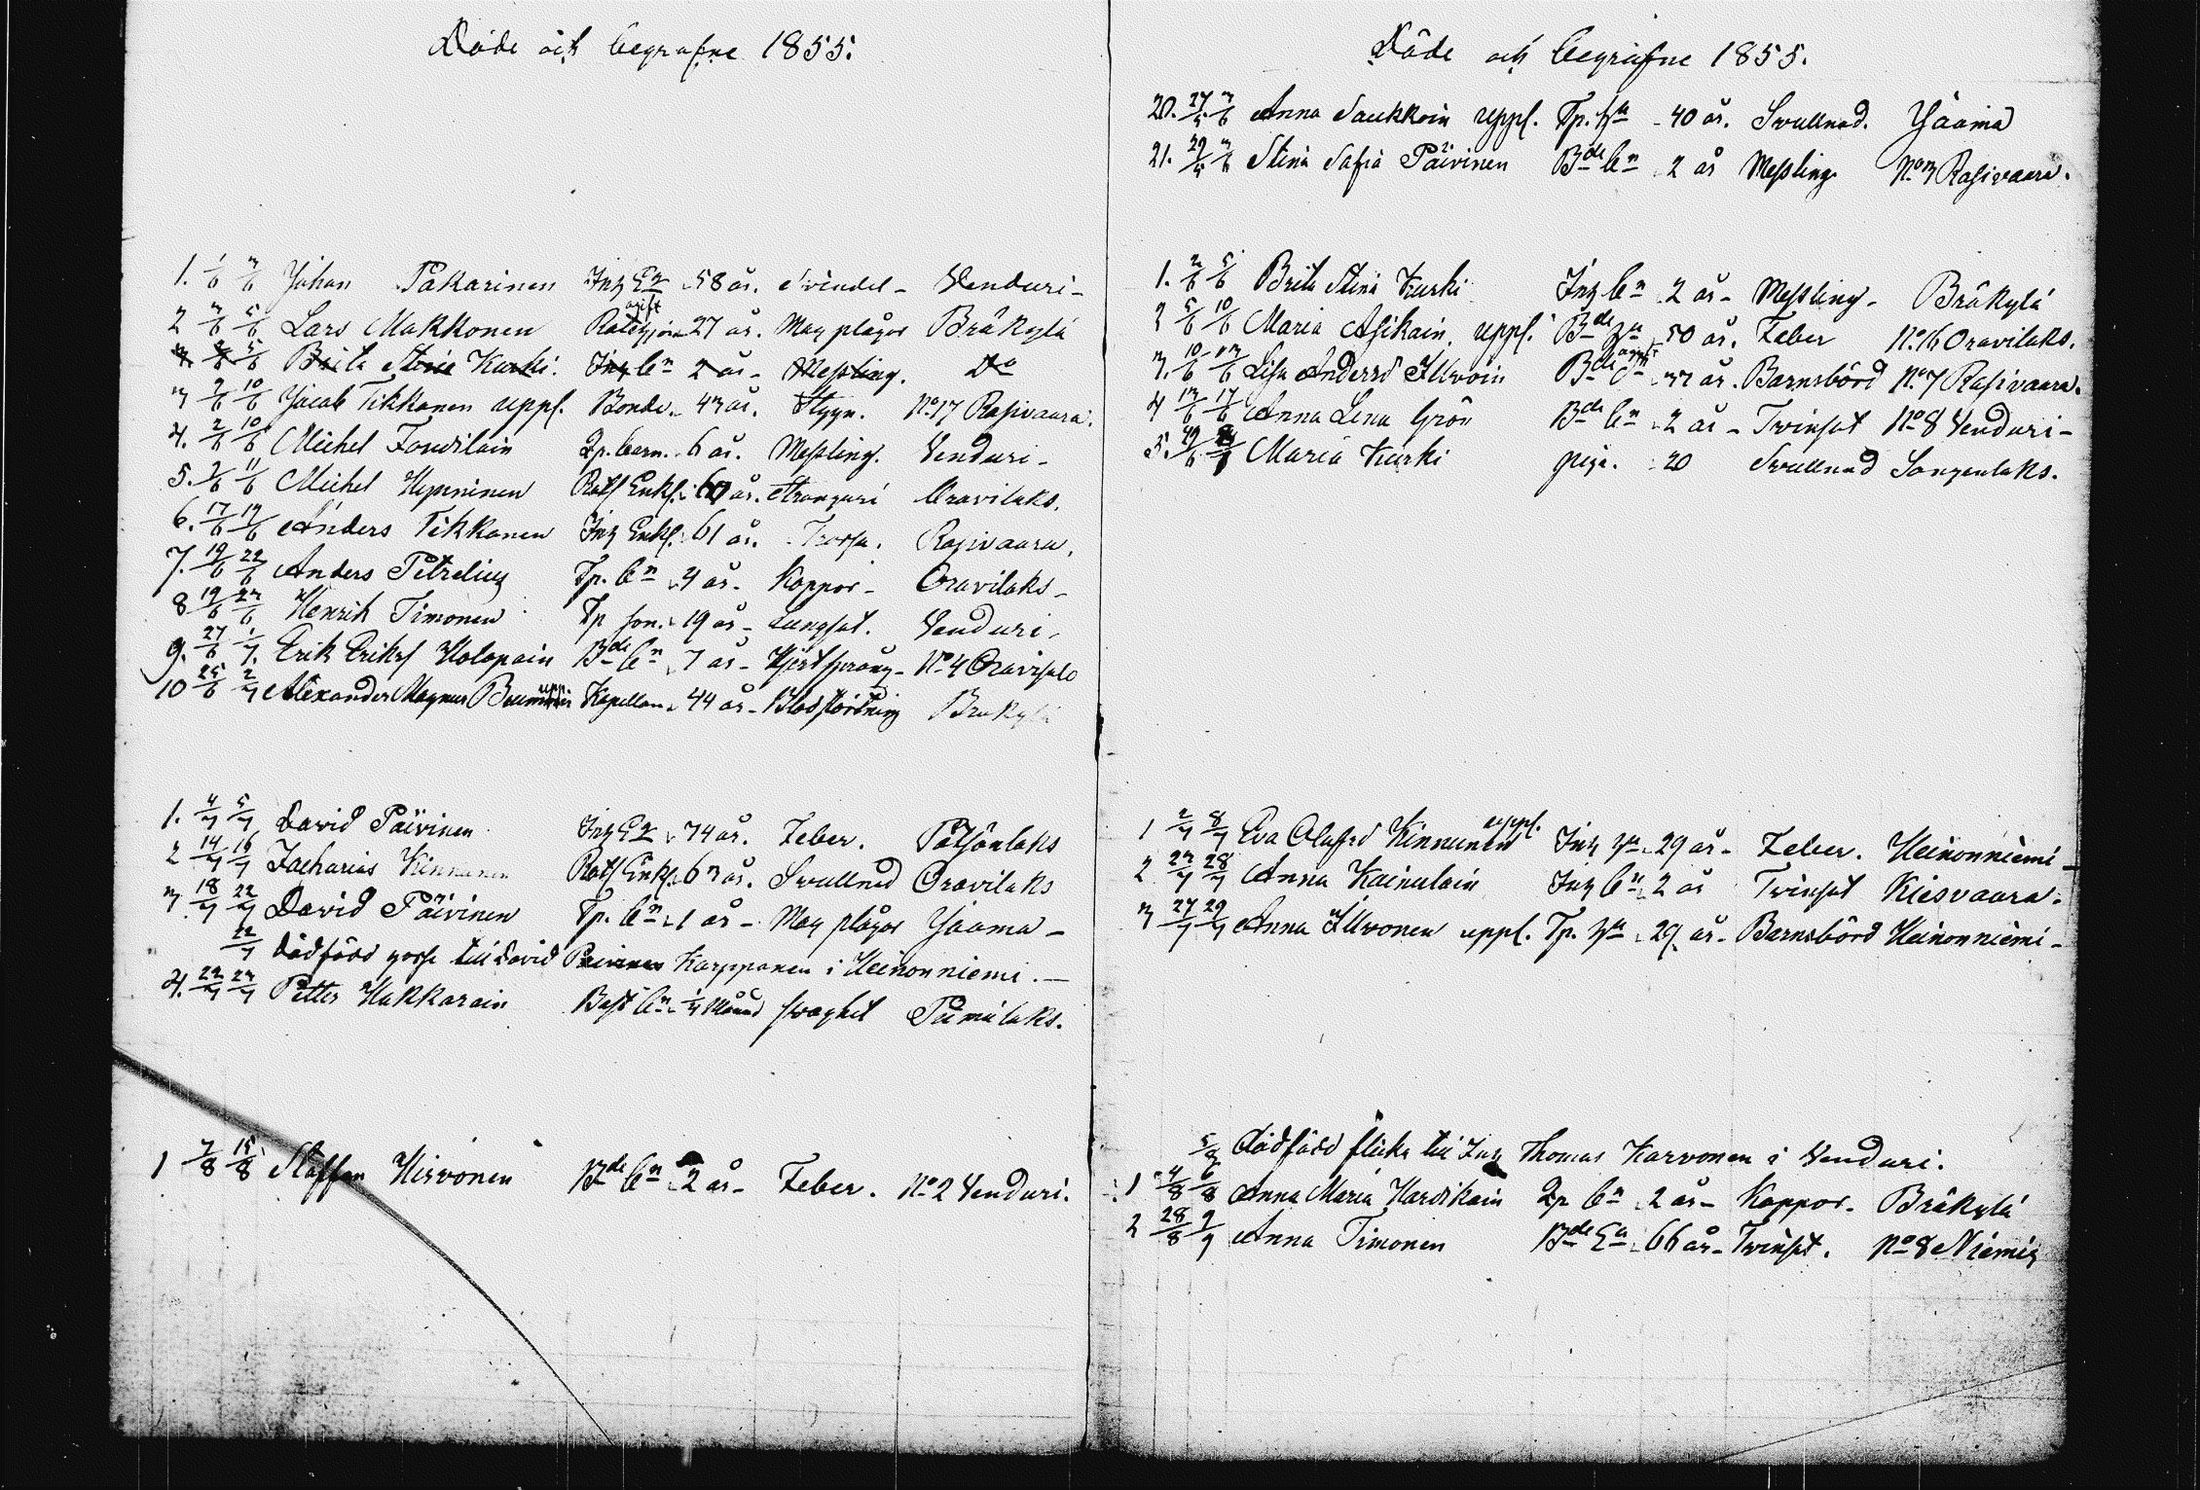 Döde och begrafne 1855.
1. 1/6 3/6 Johan Pakarinen Inh E. 58 år. Svindel - Wenduri -
gift
2 3/6 5/6 Lars Makkonen 27 år. Mag plågor Bråkylä
Brita Stina Kurki. Inh bn 2 år - Messling. Do
3 2/6 10/6 Jacob Tikkanen uppl. Bonde. 43 år. Styng. No 17 Rasivaara.
4. 2/6 10/6 Michel Lp. barn. 6 år. Messling. Wenduri -
5. 11/6 Michel Hynninen Rotf Enkl. år. Stranguri Oravilaks.
6. 17/6 19/6 Anders Tikkanen Inh Enkl. 61 år. Rasivaara.
7. 19/6 22/6 Anders Petrelius Tp. bn 4 år. Koppor - Oravilaks -
8 19/6 23/6 Henrik Timonen Tp son. 19 år - Lungsot. Wenduri -
9. 27/6 1/7. Erik Eriks Holopain Bde bn 7 år - Hjertsprång - No 4 Oravisalo
10 25/6 2/7 Alexander Magnus uppl. Kapellan 44 år - Blodstörtning Bråkylä
1. 4/7 5/7 David Päivinen Inh E. 74 år. Feber. Potsönlaks
2 14/7 16/7 Zacharias Kinnunen Rotf Enkl. 63 år. Swullnad Oravilaks
3 18/7 22/7 David Päivinen Tp. bn 1 år - Mag plågor Jaama -
22/7 dödfödd gosse till David Karppanen i Heinonniemi. -
4. 22/7 23/7 Petter Hakkarain bn Månad svaghet Pumilaks.
1 7/8 15/8 Staffan Hirvonen Bde bn 2 år - Feber. No 2 Wenduri.
Döde och begrafne 1855.
20. 27/5 3/6 Anna Saukkoin uppl. Tp. Hu - 40 år. Swullnad. Jaama
21. 29/5 3/6 Stina Sofia Päivinen Bde bn 2 år Messling. No 3 Rasivaara.
1. 2/6 5/6 Brita Stina Kurki Inh bn 2 år - Messling - Bråkylä
2 5/6 10/6 Maria Asikain, uppl. Bde Hu 50 år. Feber No 16 Oravilaks.
3. 10/6 13/6 Lisa Andersd Illwoin Bde 33 år. Barnsbörd No 7 Rasivaara.
4 13/6 17/6 Anna Lena Grön Bde bn 2 år - Twinsot No 8 Wenduri -
5. 29/6 Maria Kurki piga. 20 Swullnad Sangenlaks.
1 2/7 8/7 Eva Olofsd Kinnunen uppl. Inh Hu 29 år - Feber. Heinonniemi -
2 23/7 28/7 Anna Kainulain Inh bn 2 år Twinsot Kiesvaara.
3 27/7 29/7 Anna Illwonen uppl. Tp. Hu 29 år - Barnsbörd Heinonniemi -
5/8 dödfödd flicka till Inh Thomas Karvonen i Wenduri.
1 4/8 6/8 Anna Maria Harvikain Lp bn 2 år - Koppor - Bråkylä
2 28/8 2/9 Anna Timonen Bde Ea 66 år - Twinsot. No 8 Niemis